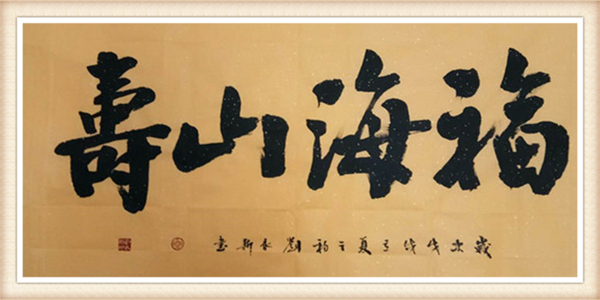 福海山壽
歲次戊戌夏之初劉永新書